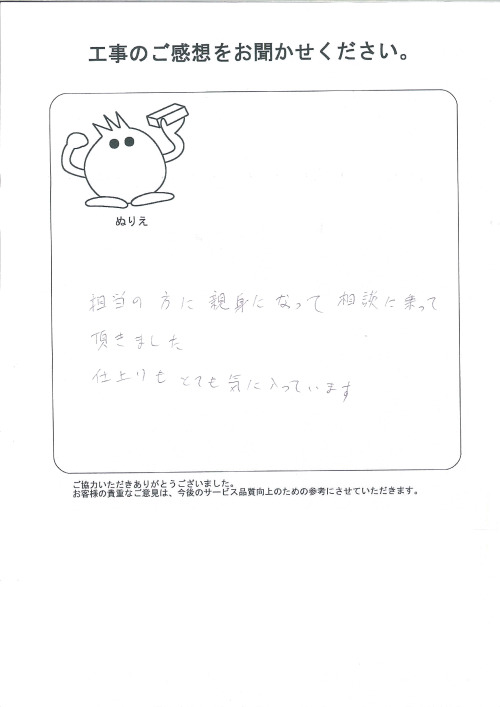 工事のご感想をお聞かせください。
ぬりえ
担当の方に親身になって相談に乗って
頂きました
仕上りもとても気に入っています
ご協力いただきありがとうございました。
お客様の貴重なご意見は、今後のサービス品質向上のための参考にさせていただきます。